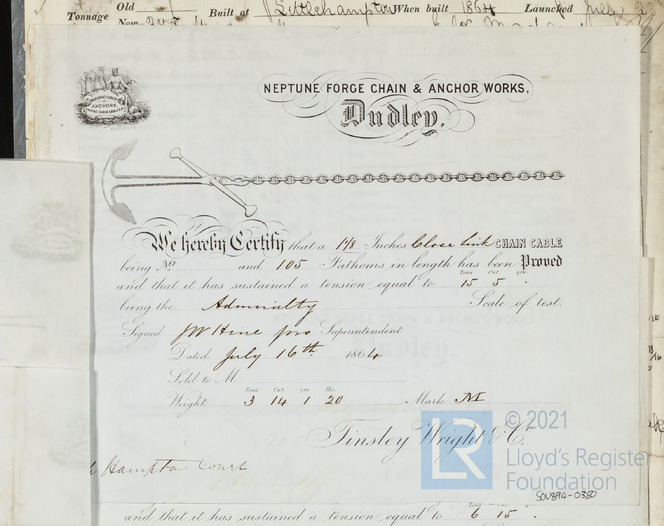 Tonnage Old Built at Littlehampton When built 1864 Launched July
New
NEPTUNE FORGE CHAIN & ANCHOR WORKS,
Dudley.
MANUFACTURERS OF ANCHORS,
We hereby Certify that a 1 1/8 Inches Close link CHAIN CABLE
being No and 105 Fathoms in length has been Proved
Tons Cwt. qrs.
and that it has sustained a tension equal to 15 5 .
being the Admiralty Scale of test.
Signed J W Hine pro Superintendent
Dated July 16th 1864
Sold to M
Tons Cwt. qrs lbs.
Weight 3 14 1 20 Mark
Tinsley Wright & Co
Hampton Court
and that it has sustained a tension equal to 6 15 .
LR © 2021
Lloyd's Register
Foundation
SOV894-0380